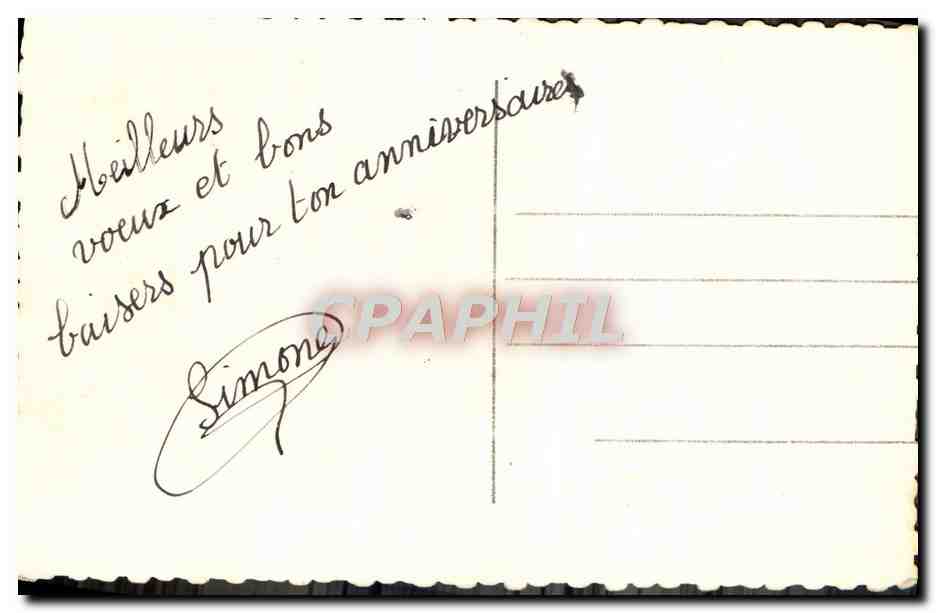 Meilleurs
voeux et bons
baisers pour ton anniversaire
Simone
CPAPHIL